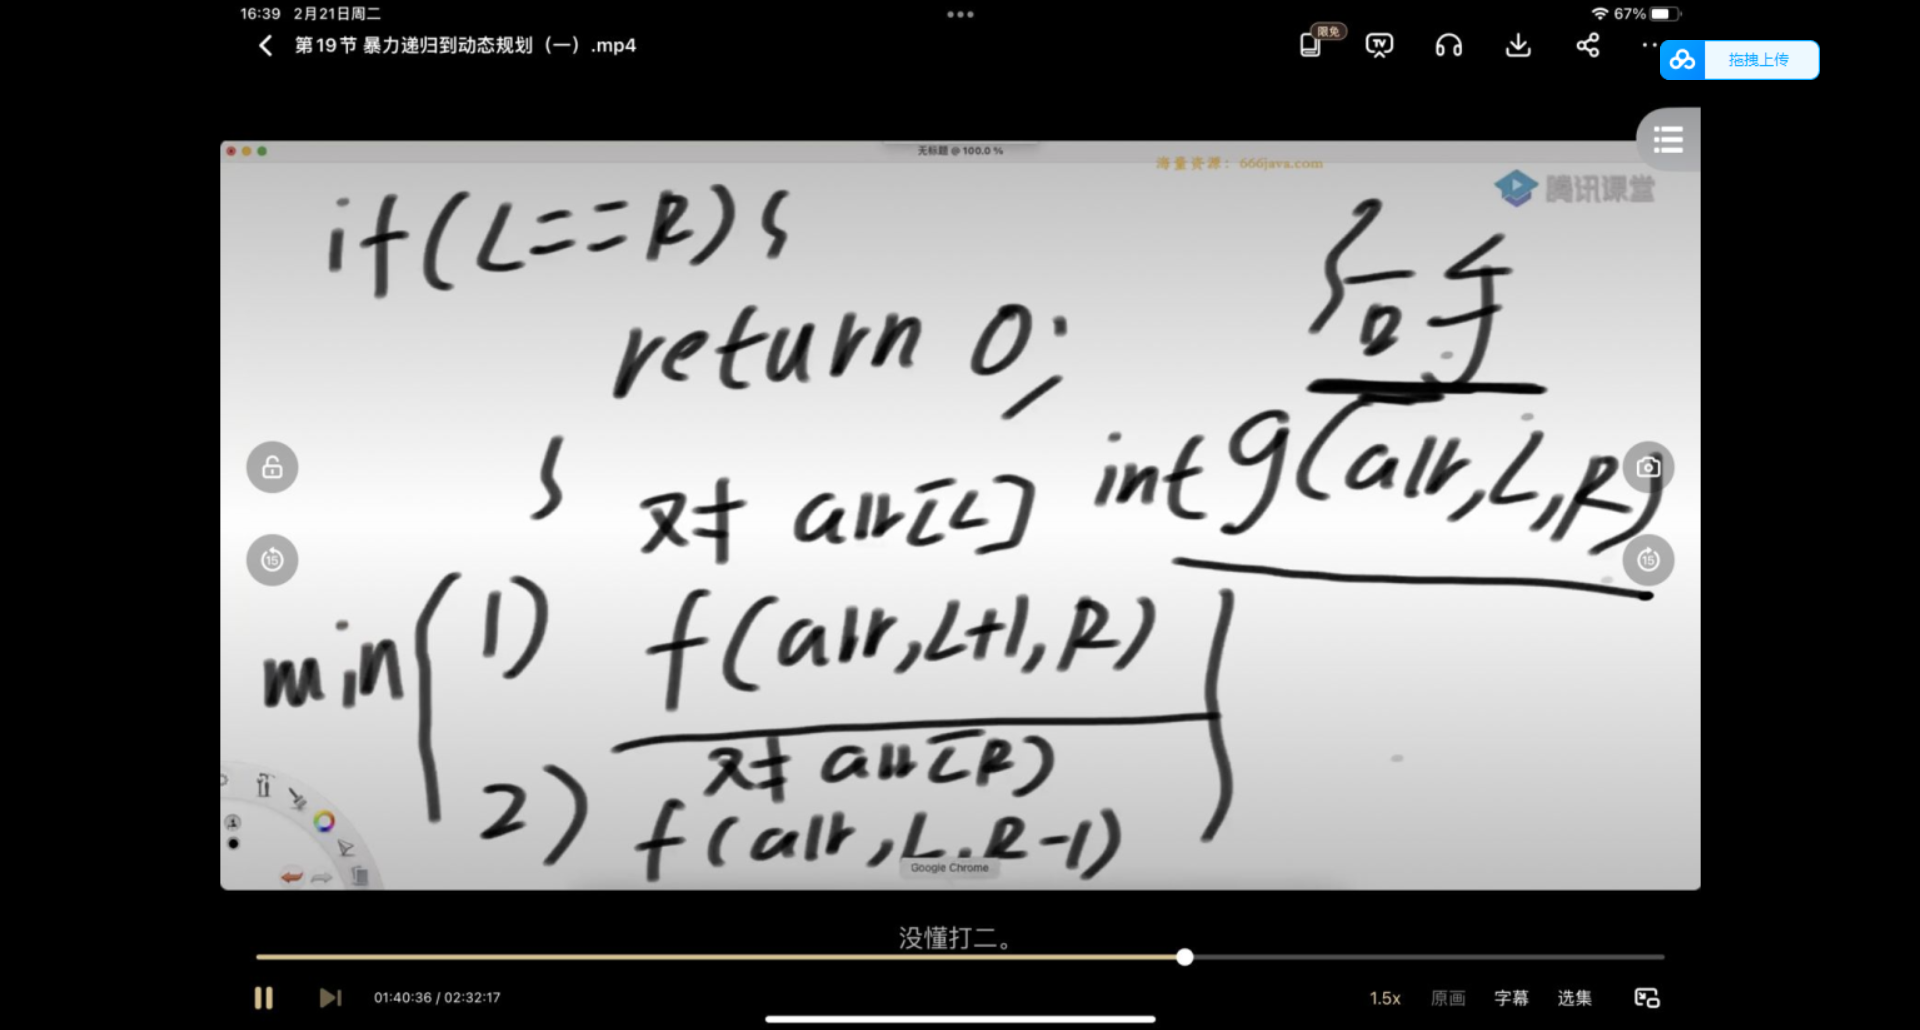 16:39 2月21日周二
67%
第19节 暴力递归到动态规划（一）.mp4
限免
TV
拖拽上传
无标题 @ 100.0 %
海量资源：666java.com
腾讯课堂
if(L==R){
return 0;
}
后手
int g(arr,L,R)
对 arr[L]
min{ 1) f(arr,L+1,R)
对 arr[R]
2) f(arr,L,R-1) }
15
15
Google Chrome
没懂打二。
01:40:36 / 02:32:17
1.5x 原画 字幕 选集